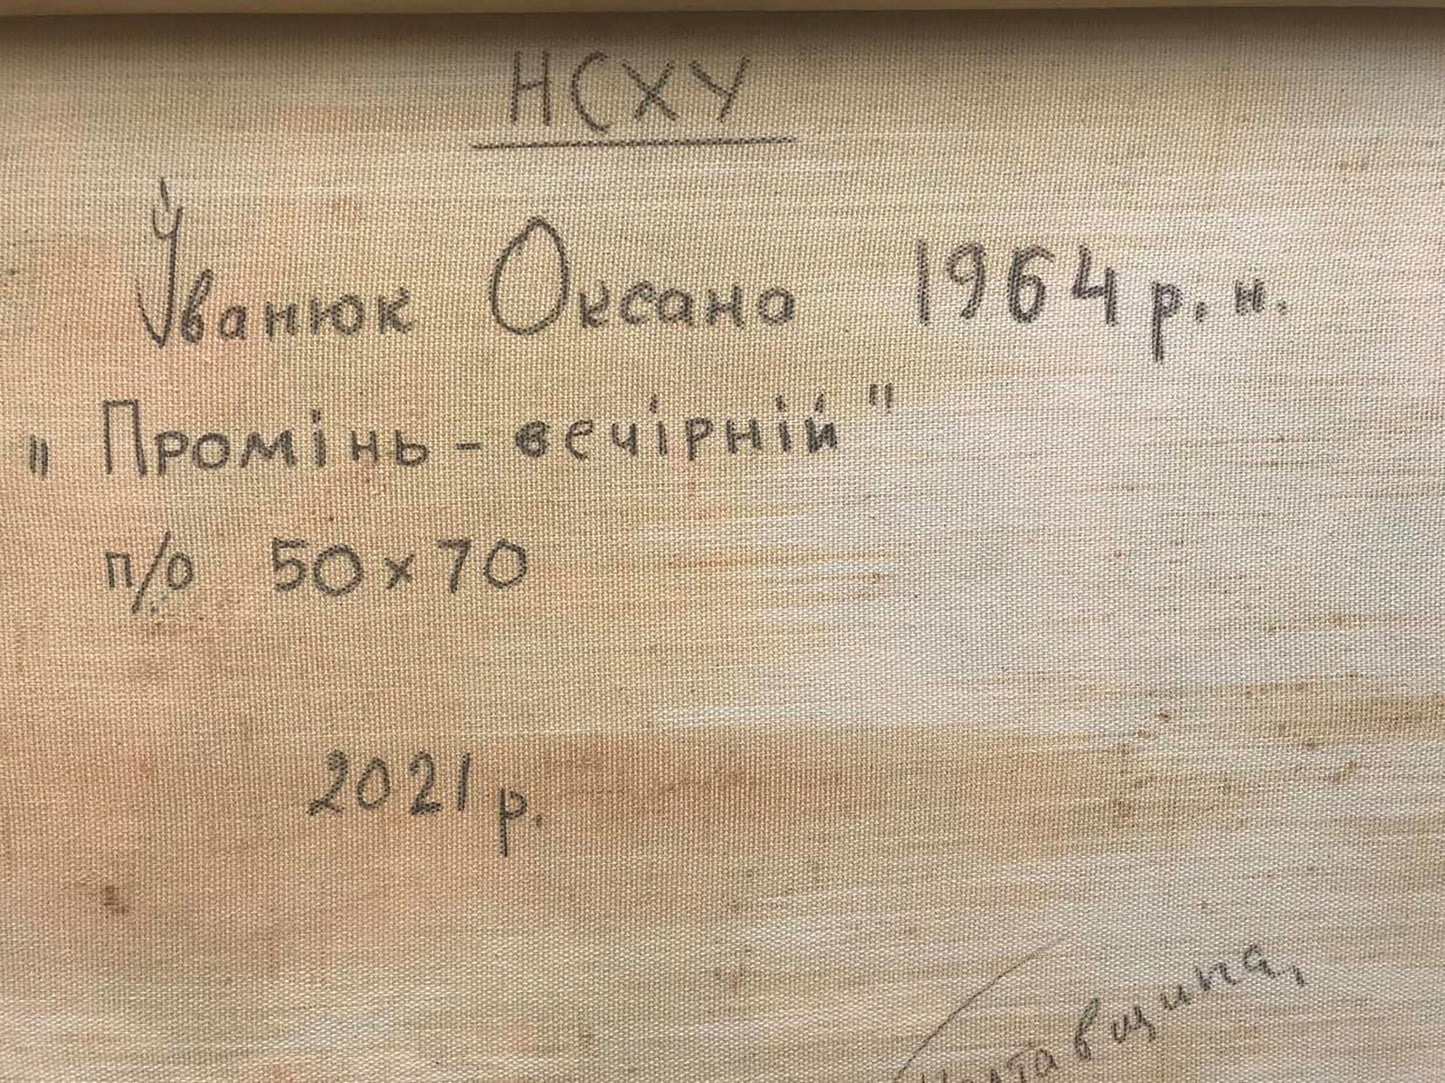 НСХУ
Іванюк Оксана 1964 р. н.
"Промінь - вечірній"
п/о 50 x 70
2021 р.
Полтавщина,